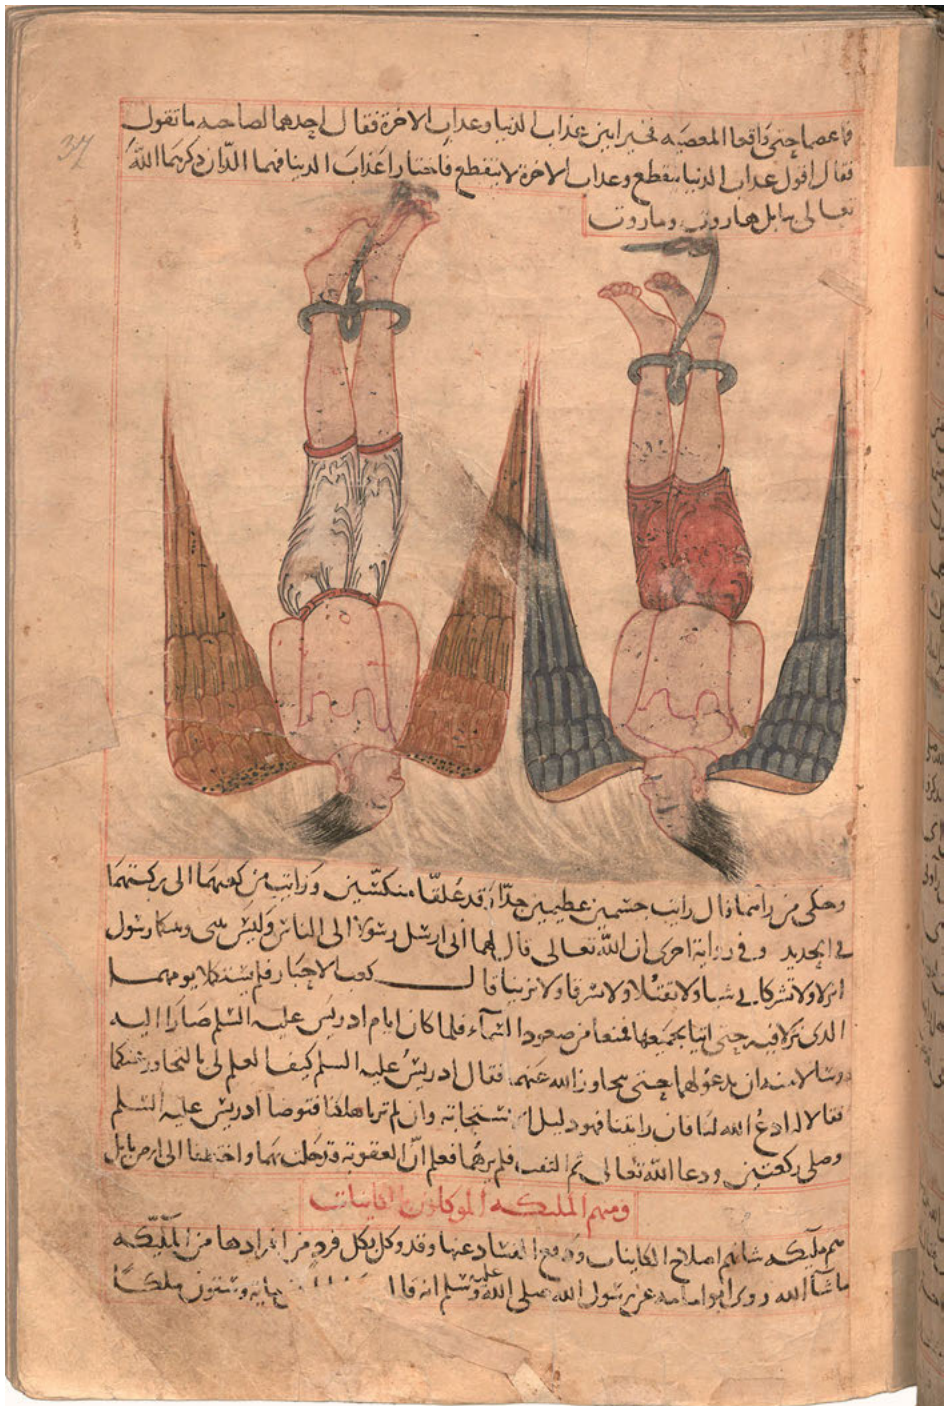 37
فما عصما حتى واقعا المعصيه فخيرا بين عذاب الدنيا وعذاب الاخرة فقال احدهما لصاحبه ما تقول
فقال اقول عذاب الدنيا ينقطع وعذاب الاخرة لا ينقطع فاختارا عذاب الدنيا فهما اللذان ذكرهما الله
تعالى ببابل هاروت وماروت
وحكى من راهما قال رايت جسمين عظيمين جدا قد علقا منكسين من كعبهما الى ركبتهما
في الحديد وفي رواية اخرى ان الله تعالى قال لهما انى ارسل رسولا الى الناس وليس بينى وبينكما رسول
انزلا ولا تشركا بي شيا ولا تقتلا ولا تسرقا ولا تزنيا قال كعب الاحبار فلم يستكملا يومهما
الذى نزلا فيه حتى اتيا بجميعها فمنعا من صعود السماء فلما كان ايام ادريس عليه السلم صارا اليه
وسالا منه ان يدعو لهما حتى يتجاوز الله عنهما فقال ادريس عليه السلم كيف العلم لى بالتجاوز عنكما
فقالا له ادع الله لنا فان رايتنا فهو دليل استجابته وان لم ترنا هلكنا فتوضا ادريس عليه السلم
وصلى ركعتين ودعا الله تعالى ثم التفت فلم يرهما فعلم ان العقوبة قد حلت بهما واختطفا الى ارض بابل
ومنهم الملئكه الموكلون بالكاينات
هم مليكه شانهم اصلاح الكاينات ودفع الفساد عنها وقد وكل بكل فرد من افرادها من المليكه
ما شا الله روى ابو امامه عن رسول الله صلى الله عليه وسلم انه قال مايه وستون ملكا